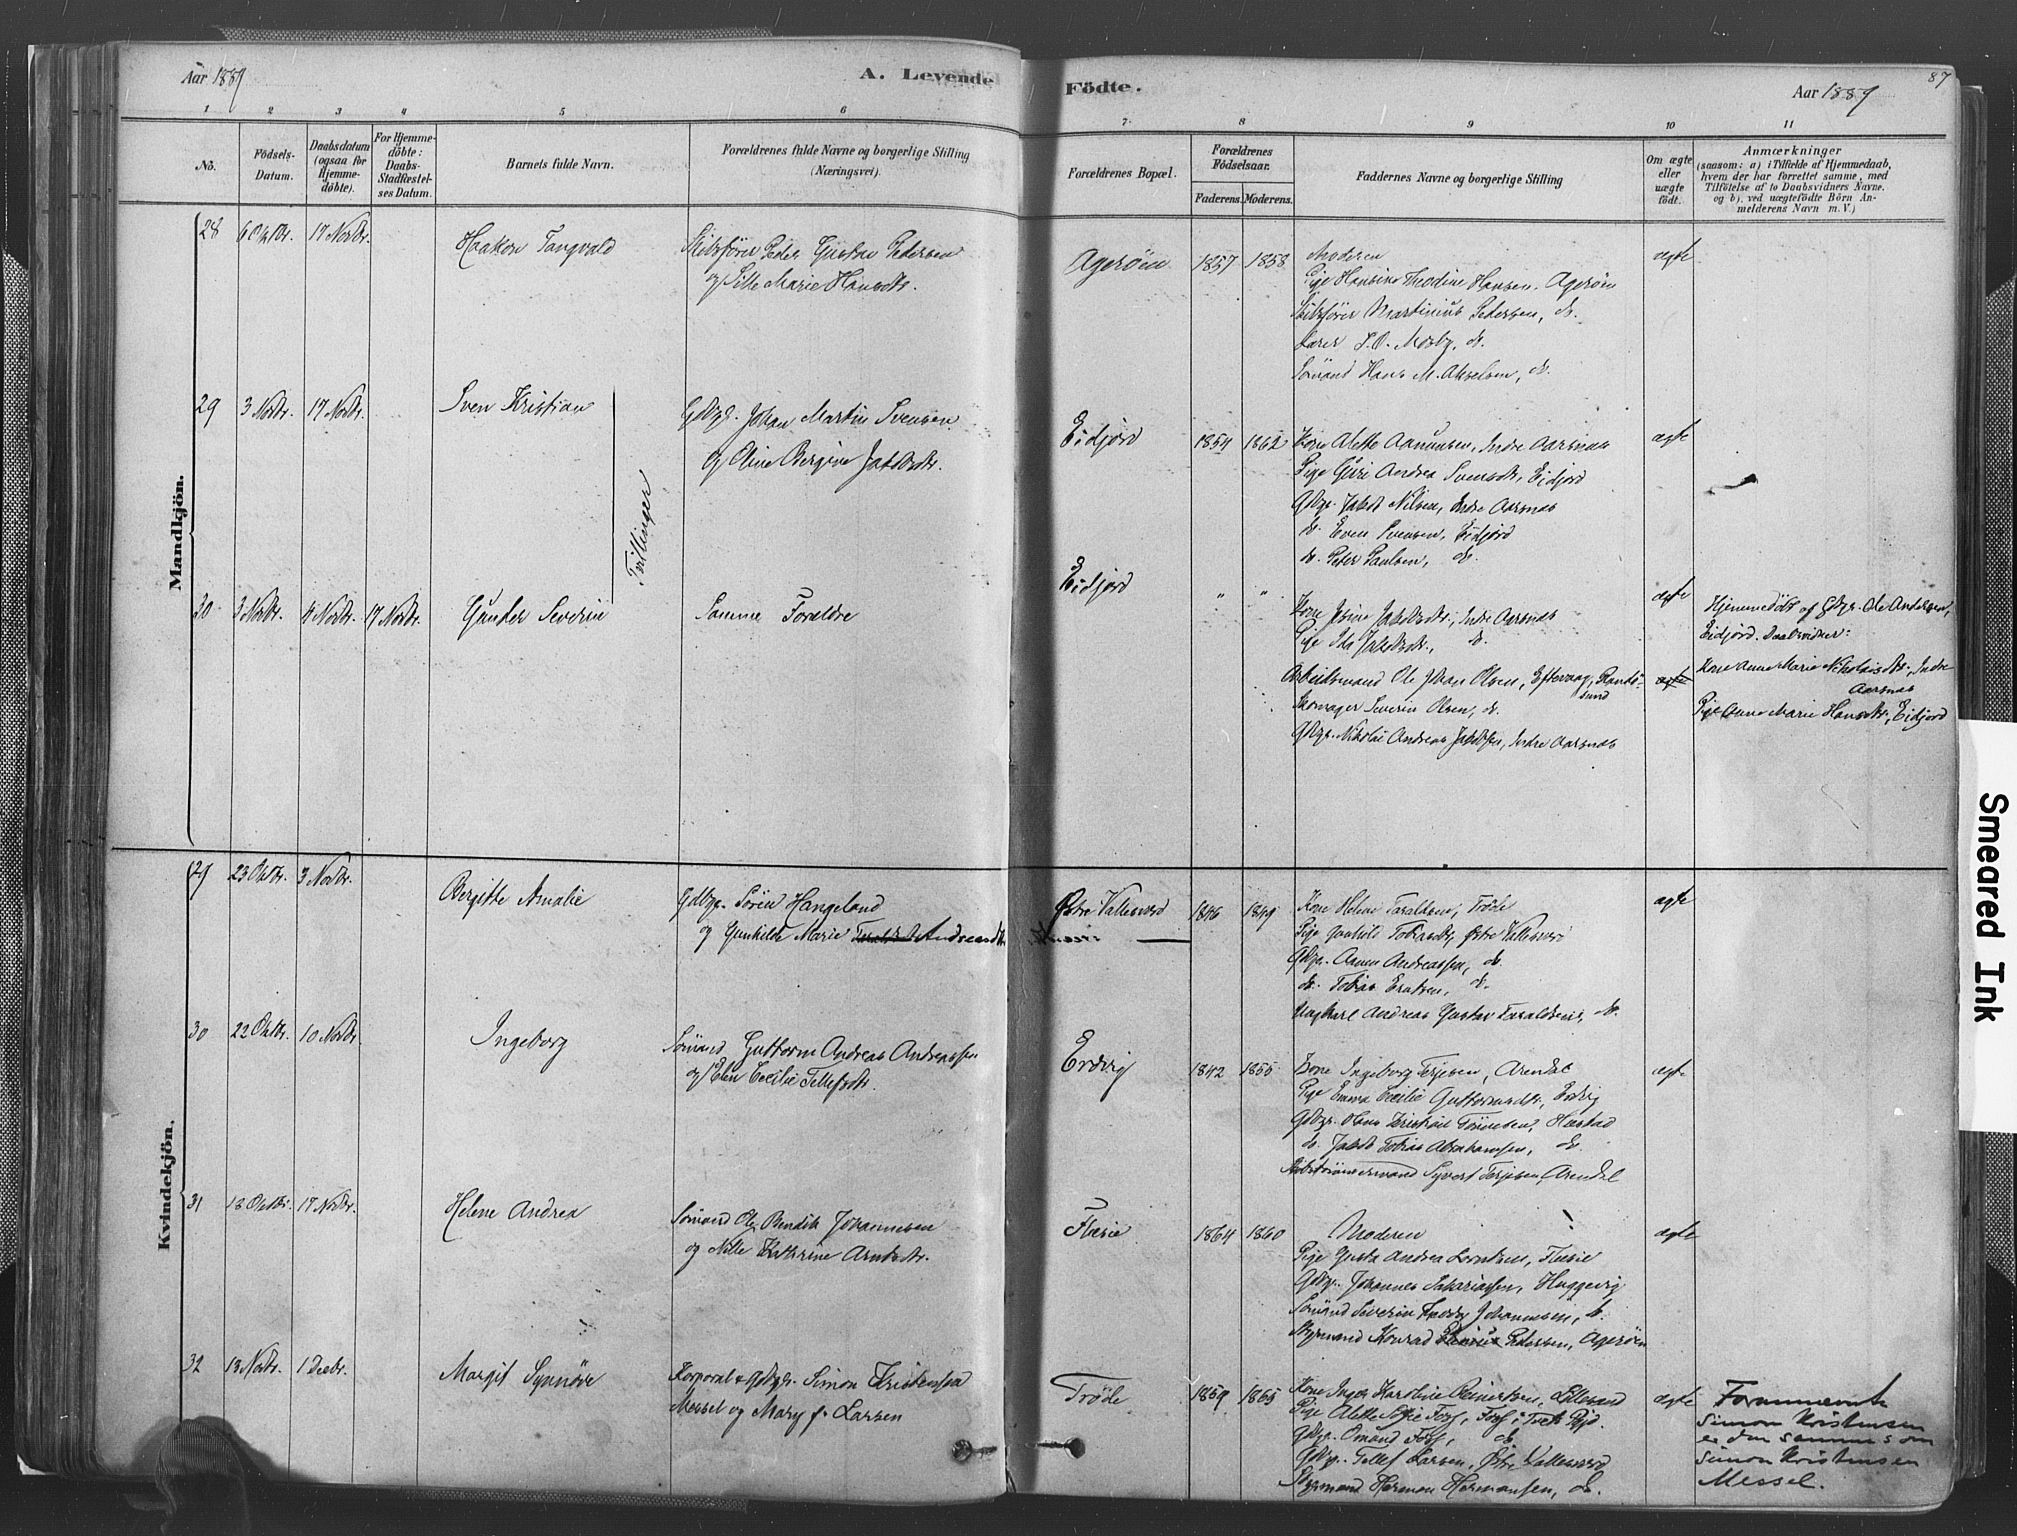 Aar 1889
A. Levende
Födte.
Aar 1889
87
1 2 3 4 5 6 7 8 9 10 11
No.
Födsels-
Datum.
Daabsdatum
(ogsaa for
Hjemme-
döbte).
For Hjemme-
döbte:
Daabs-
Stadfæstel-
ses Datum.
Barnets fulde Navn.
Forældrenes fulde Navne og borgerlige Stilling
(Næringsvei).
Forældrenes Bopæl.
Forældrenes
Födselsaar.
Faderens. Moderens.
Faddernes Navne og borgerlige Stilling
Om ægte
eller
uægte
födt.
Anmærkninger
(saasom: a) i Tilfælde af Hjemmedaab,
hvem der har forrettet samme, med
Tilföielse af to Daabsvidners Navne.
og b). ved uægtefödte Börn An-
melderens Navn m. V.)
Mandkjön.
28 6 Oktbr. 17 Novbr. Haakon Tangvald
Skibsfører Peder Gustav Pedersen
og Sille Marie Hansdtr.
Agerøen 1857 1858
Moderen
Pige Hansine Theodine Hansen. Agerøen
Skibsfører Martinius Pedersen, do.
Lærer S. O. Mosby, do.
Sømand Hans M. Akselsen, do.
ægte
29 3 Novbr. 17 Novbr. Sven Kristian
Gdbgr. Johan Martin Svensen
og Oline Bergine Jakobsdtr.
Eidjord 1854 1862
Kone Alette Aanunsen, Indre Aarsnæs
Pige Guri Andrea Svensdtr, Eidjord
Gdbgr. Jakob Nilsen, Indre Aarsnæs
do. Even Svensen, Eidjord
do. Peter Paulsen, do.
ægte
Tvillinger
30 3 Novbr. 4 Novbr. 17 Novbr. Gunder Severin
Samme Forældre
Eidjord " "
Kone Jakobsdtr., Indre Aarsnæs
Pige Ida Jakobsdtr., do.
Arbeidsmand Ole Johan Olsen, Eftevaag, Randø-
sund
Skomager Severin Olsen, do.
Gdbgr. Nikolai Andreas Jakobsen, Indre Aarsnæs
ægte
ægte
Hjemmedøbt af Gdbgr. Ole Andersen,
Eidjord. Daabsvidner:
Kone Anne Marie Nikolaisdtr., Indre
Aarsnæs
Pige Anne Marie Hansdtr., Eidjord
Kvindekjön.
29 23 Oktbr. 3 Novbr. Bergitte Amalie
Gdbgr. Søren Hangeland
og Gunhilde Marie Andreasdtr.
Østre Vallesverd 1846 1849
Kone Helene Taraldsen, Trøde
Pige Gunhild Tobiasdtr, Østre Vallesverd
Gdbgr. Aanen Andreassen, do.
do. Tobias Knutsen, do.
Ungkarl Andreas Gustav Taraldsen, do.
ægte
30 22 Oktbr. 10 Novbr. Ingeborg
Sømand Guttorm Andreas Andreassen
og Elen Cecilie Tellefsdtr.
Erdvig 1842 1855
Kone Ingeborg Terjesen, Arendal
Pige Emma Cecilie Guttormsdtr., Erdvig
Gdbgr. Hans Kristian Tønnesen, Hæstad
do. Jakob Tobias Abrahamsen, do.
Skibstømmermand Syvert Terjesen, Arendal
ægte
31 18 Oktbr. 17 Novbr. Helene Andrea
Sømand Ole Bendik Johannesen
og Nille Kathrine Arntsdtr.
Flæsie 1864 1860
Moderen
Pige Gusta Andrea Berntsen, Flæsie
Gdbgr. Johannes Sakariassen, Huggevig
Sømand Severin Johannesen, do.
Styrmand Konrad Pedersen, Agerøen
ægte
32 13 Novbr. 1 Decbr. Margit Synnöve
Korporal & Gdbgr. Simon Kristensen
Messel og Mary f. Larsen
Trøde 1859 1865
Kone Inger Karoline Reinertsen, Lillesand
Pige Alette Sofie Foss, Foss i Tvet Pgd.
Gdbgr. Omund Foss, do.
Gdbgr. Tellef Larsen, Østre Vallesverd
Styrmand Herman Hermansen, do.
ægte
Forannævnte
Simon Kristensen
er den samme som
Simon Kristensen
Messel.
Smeared Ink